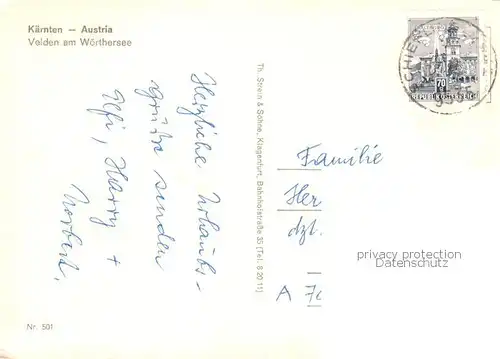 Kärnten — Austria
Velden am Wörthersee
Herzliche Urlaubs-
grüße senden
Harry +
Norbert.
Th. Strein & Söhne, Klagenfurt, Bahnhofstraße 35 (Tel. 82011)
70
REPUBLIK ÖSTERREICH
Familie
Her
dzt.
privacy protection
Datenschutz
A
Nr. 501